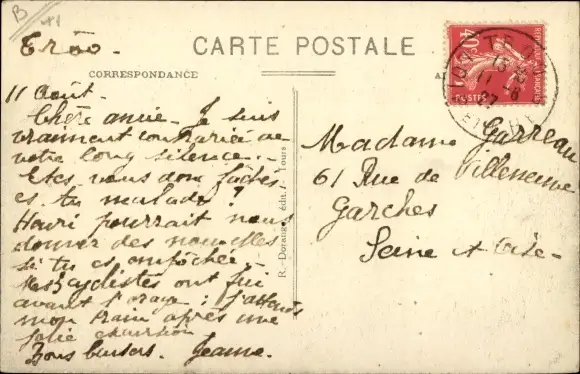 B
Tröo -
CARTE POSTALE
CORRESPONDANCE
11 Août -
Chère amie - Je suis
vraiment contrariée de
votre long silence. -
Etes vous donc fachés
es. tu malade ?
Henri pourrait nous
donner des nouvelles
si tu es empêchée. -
cyclistes ont fui
avant l'orage : j'attends
mon train après une
jolie excursion
Bons baisers. Jeanne.
R. Dorange, édit., Tours
REPUBLIQUE FRANÇAISE
40c
POSTES
TRÔO
11 -8
27
Madame Garreau
61 Rue de Villeneuve
Garches
Seine et Oise -